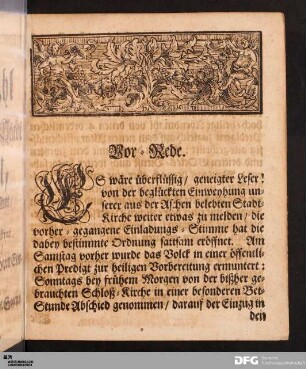 Vor-Rede.
ES wäre überflüssig / geneigter Leser!
von der beglückten Einweyhung un-
serer aus der Aschen belebten Stadt-
Kirche weiter etwas zu melden / die
vorher-gegangene Einladungs-Stimme hat die
dabey bestimmte Ordnung sattsam eröffnet. Am
Samstag vorher wurde das Volck in einer öffentli-
chen Predigt zur heiligen Vorbereitung ermuntert:
Sonntags bey frühem Morgen von der bißher ge-
brauchten Schloß-Kirche in einer besonderen Bet-
Stunde Abschied genommen / darauf der Einzug in
den
DFG